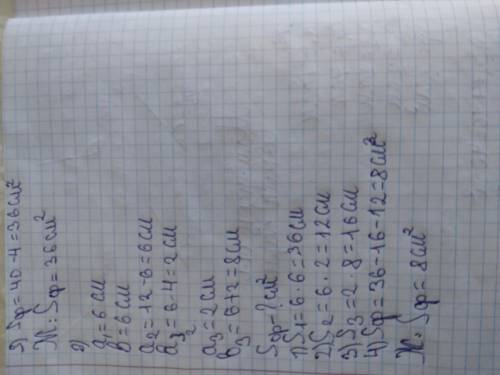 3) Sф=40-4=36см²
Ж: Sф=36см²
2)
a₁=6см
b=6см
a₂=12-6=6см
a₂=6-4=2см
a₃=2см
b₃=6+2=8см
Sф-?см²
1) S₁=6·6=36см
2) S₂=6·2=12см
3) S₃=2·8=16см
4) Sф=36-16-12=8см²
Ж: Sф=8см²